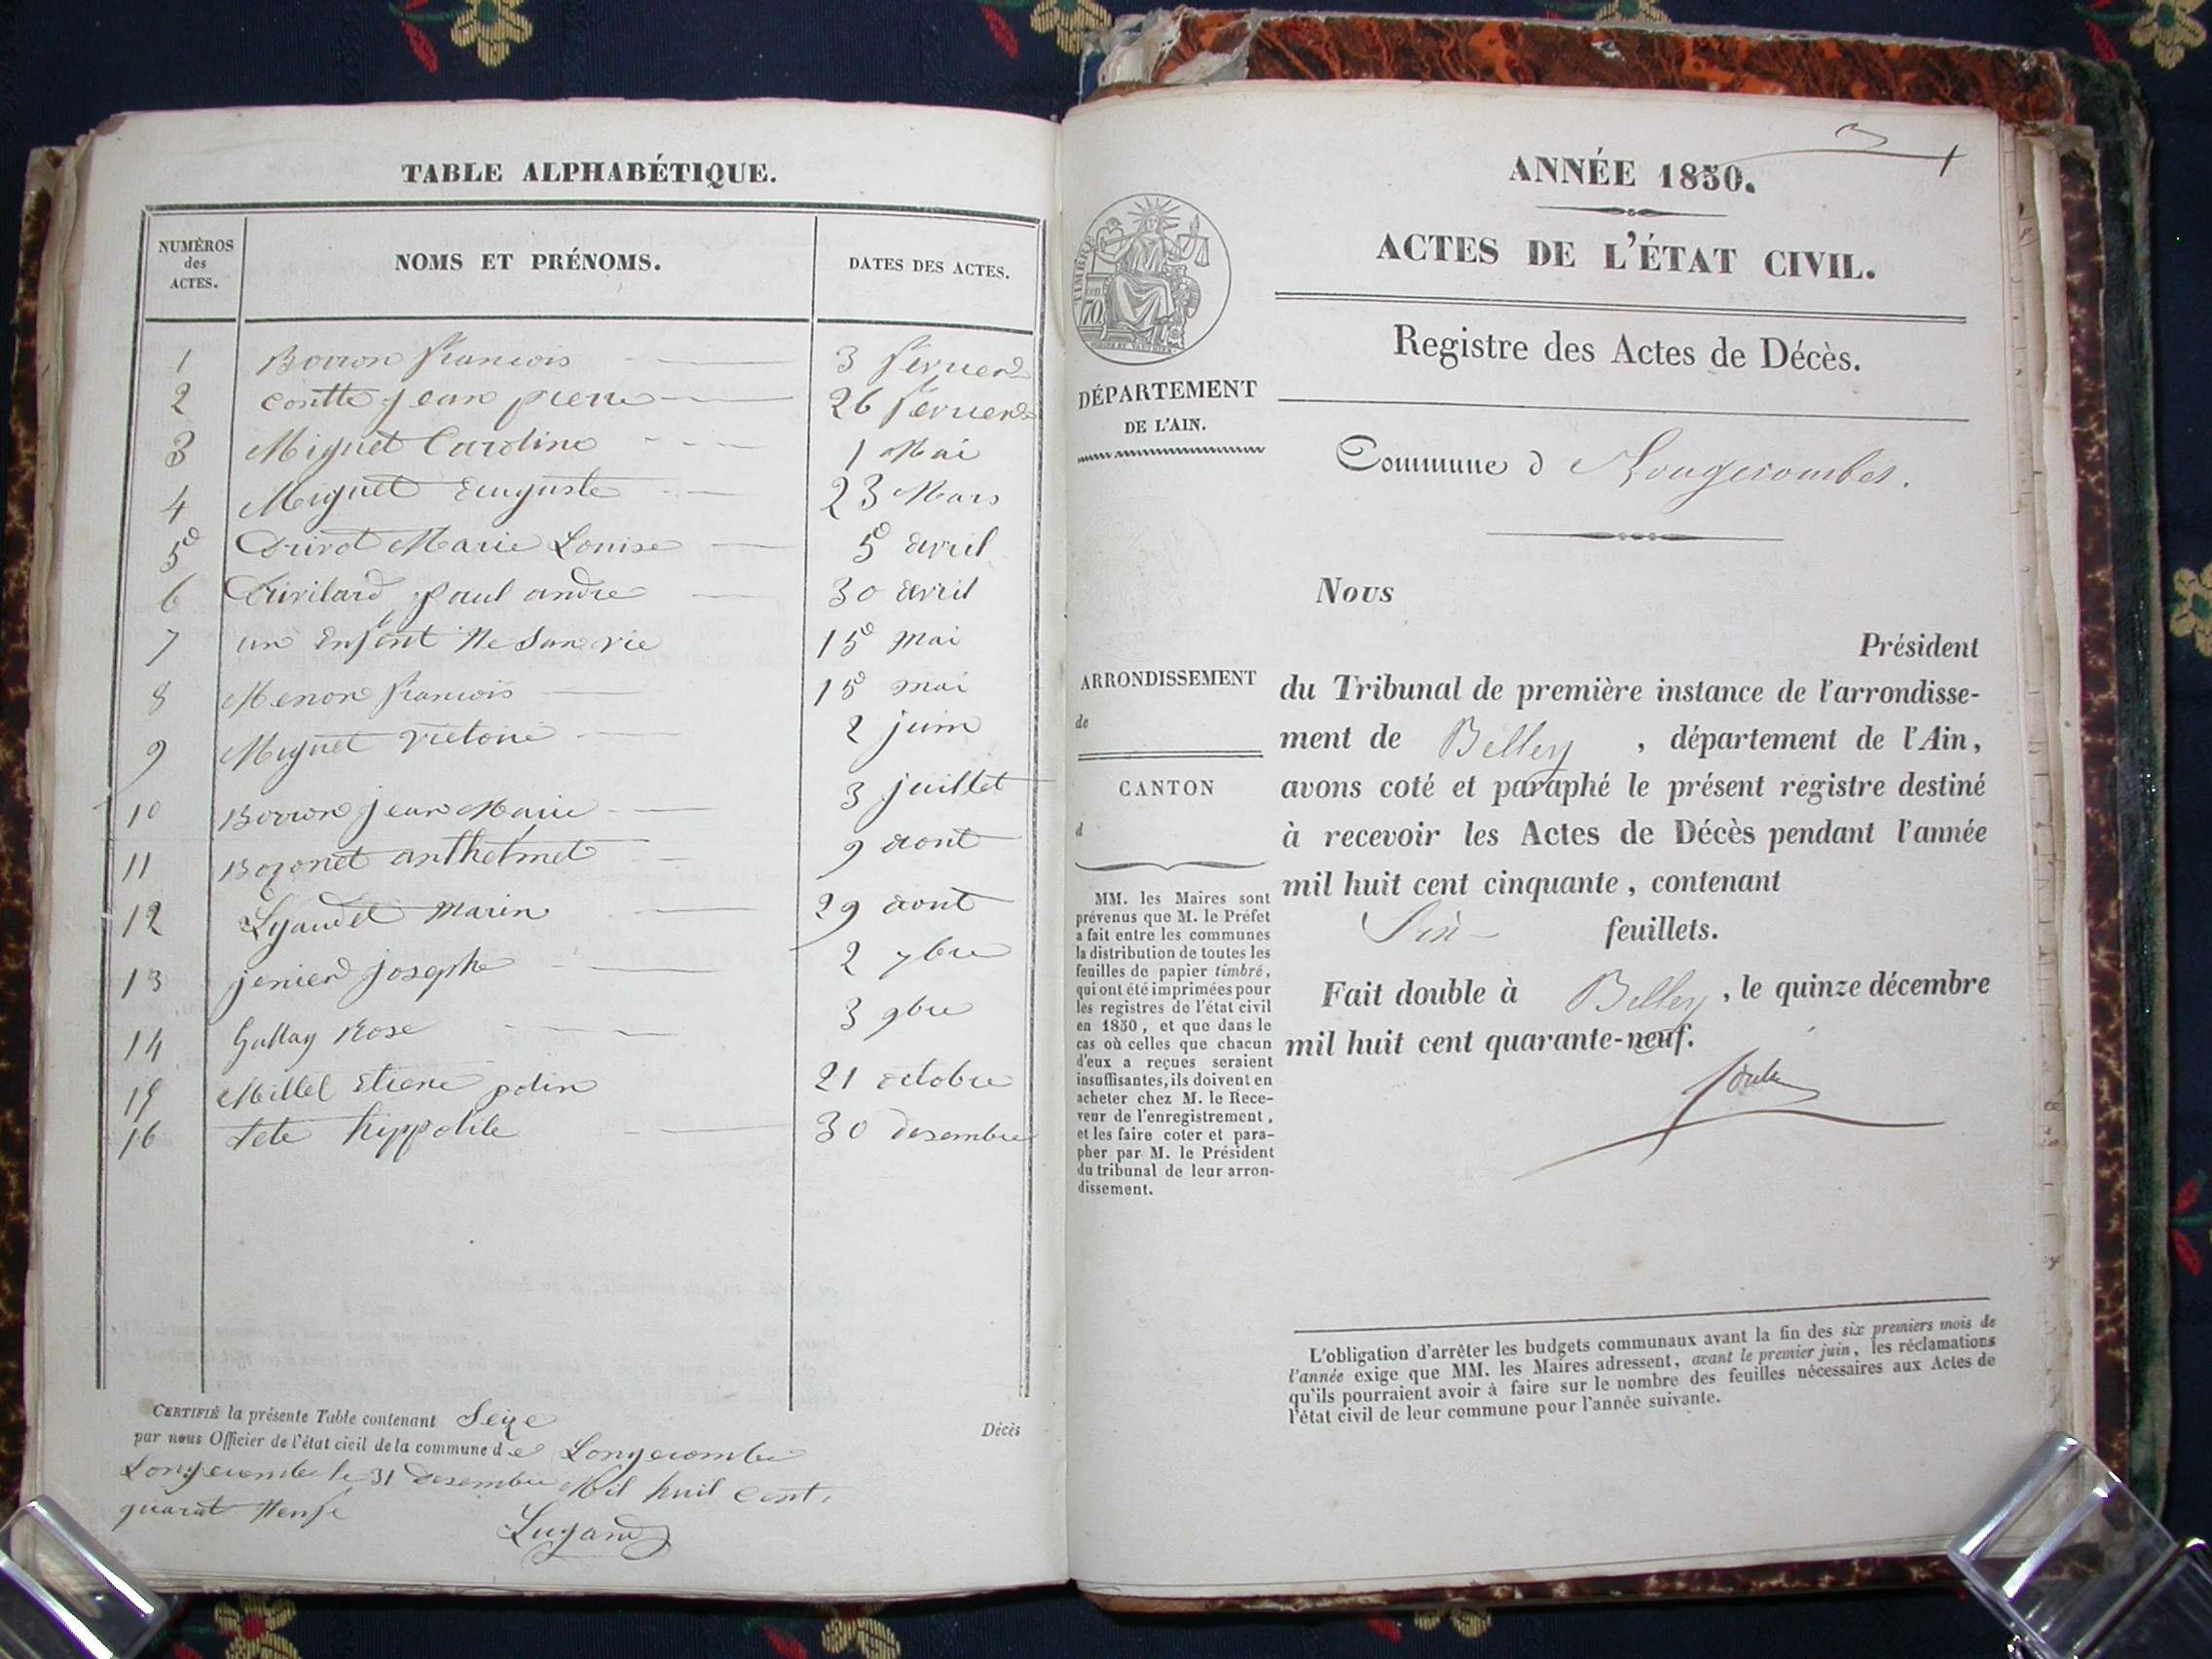 TABLE ALPHABÉTIQUE.
NUMÉROS des ACTES.
NOMS ET PRÉNOMS.
DATES DES ACTES.
1 Borron francois 3 fevrier
2 Coutte jean pierre 26 fevrier
3 Miguet Caroline 1 Mai
4 Miguet auguste 23 Mars
5 Drivot Marie Louise 5 avril
6 paul andre 30 avril
7 un Enfent Ne San vie 15 mai
8 Menon francois 15 mai
9 Miguet victoire 2 juin
10 Borron jean Marie 3 juillet
11 Bozonet anthelmet 9 aout
12 Lyaudet Marin 29 aout
13 jenier josephe 2 7bre
14 Gallay Rose 3 9bre
15 Millet Etiene 21 octobre
16 tete hippolile 30 desembre
CERTIFIÉ la présente Table contenant Seize Décès
par nous Officier de l'état civil de la commune de Longecombe
Longecombe le 31 desembre Mil huit cent
quarat Neufe
Lugand
ANNÉE 1850.
1
ACTES DE L'ÉTAT CIVIL.
TIMBRE
70
Registre des Actes de Décès.
DÉPARTEMENT
DE L'AIN.
Commune d Longecombes.
Nous
Président
ARRONDISSEMENT
de
CANTON
d
du Tribunal de première instance de l'arrondisse-
ment de Belley , département de l'Ain,
avons coté et paraphé le présent registre destiné
à recevoir les Actes de Décès pendant l'année
mil huit cent cinquante, contenant
Six feuillets.
Fait double à Belley , le quinze décembre
mil huit cent quarante-neuf.
MM. les Maires sont
prévenus que M. le Préfet
a fait entre les communes
la distribution de toutes les
feuilles de papier timbré,
qui ont été imprimées pour
les registres de l'état civil
en 1850, et que dans le
cas où celles que chacun
d'eux a reçues seraient
insuffisantes, ils doivent en
acheter chez M. le Rece-
veur de l'enregistrement,
et les faire coter et para-
pher par M. le Président
du tribunal de leur arron-
dissement.
L'obligation d'arrêter les budgets communaux avant la fin des six premiers mois de
l'année exige que MM. les Maires adressent, avant le premier juin, les réclamations
qu'ils pourraient avoir à faire sur le nombre des feuilles nécessaires aux Actes de
l'état civil de leur commune pour l'année suivante.